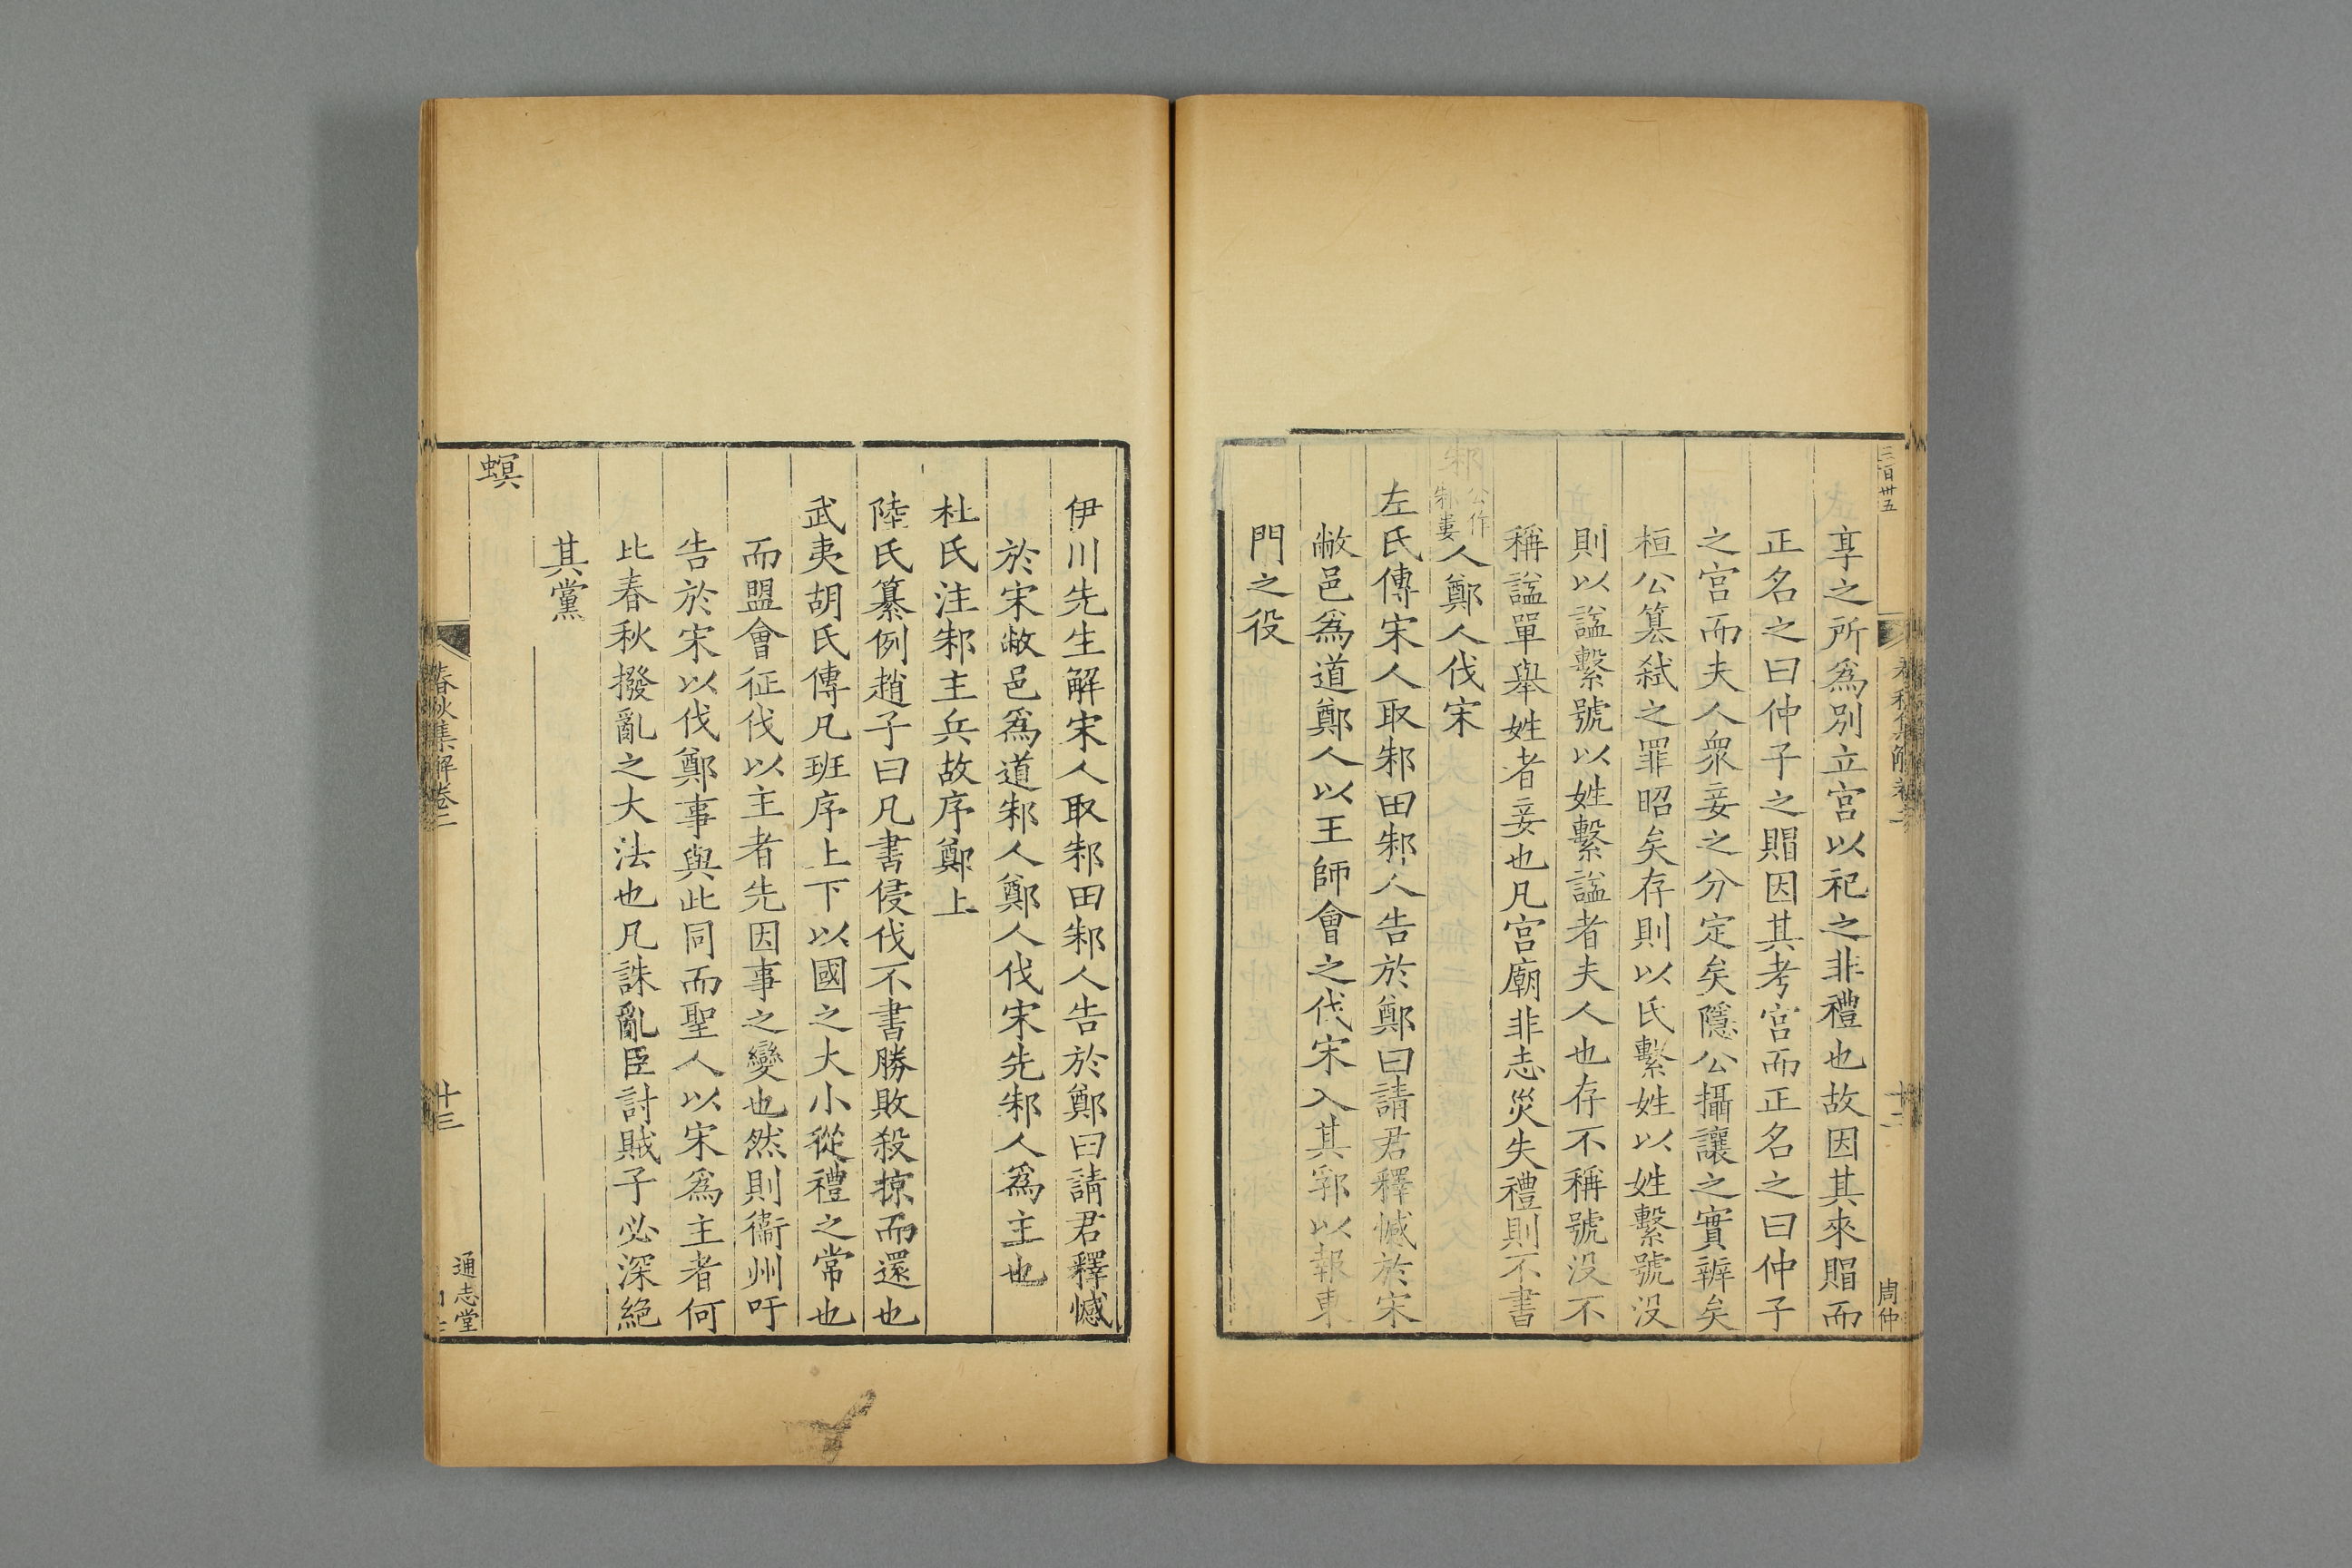 三百卅五
周仲
享之所爲別立宮以祀之非禮也故因其來賵而
正名之曰仲子之賵因其考宮而正名之曰仲子
之宮而夫人衆妾之分定矣隱公攝讓之實辨矣
桓公篡弑之罪昭矣存則以氏繫姓以姓繫號没
則以諡繫號以姓繫諡者夫人也存不稱號没不
稱諡單舉姓者妾也凡宮廟非志災失禮則不書
邾公作邾婁人鄭人伐宋
左氏傳宋人取邾田邾人告於鄭曰請君釋憾於宋
敝邑爲道鄭人以王師會之伐宋入其郛以報東
門之役
伊川先生解宋人取邾田邾人告於鄭曰請君釋憾
於宋敝邑爲道邾人鄭人伐宋先邾人爲主也
杜氏注邾主兵故序鄭上
陸氏纂例趙子曰凡書侵伐不書勝敗殺掠而還也
武夷胡氏傳凡班序上下以國之大小從禮之常也
而盟會征伐以主者先因事之變也然則衞州吁
告於宋以伐鄭事與此同而聖人以宋爲主者何
比春秋撥亂之大法也凡誅亂臣討賊子必深絕
其黨
螟
春秋集解卷二
十三
通志堂